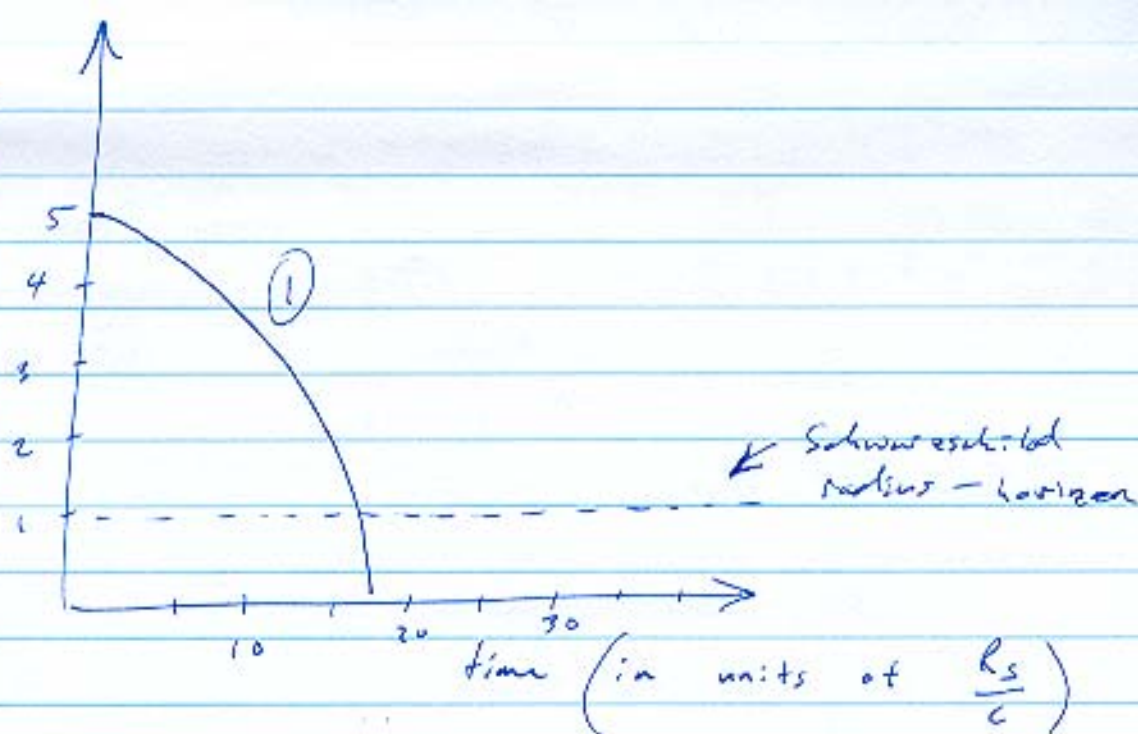 5
4
①
3
2
Schwarzschild
radius - horizon
1
10 20 30
time (in units of Rs/c)